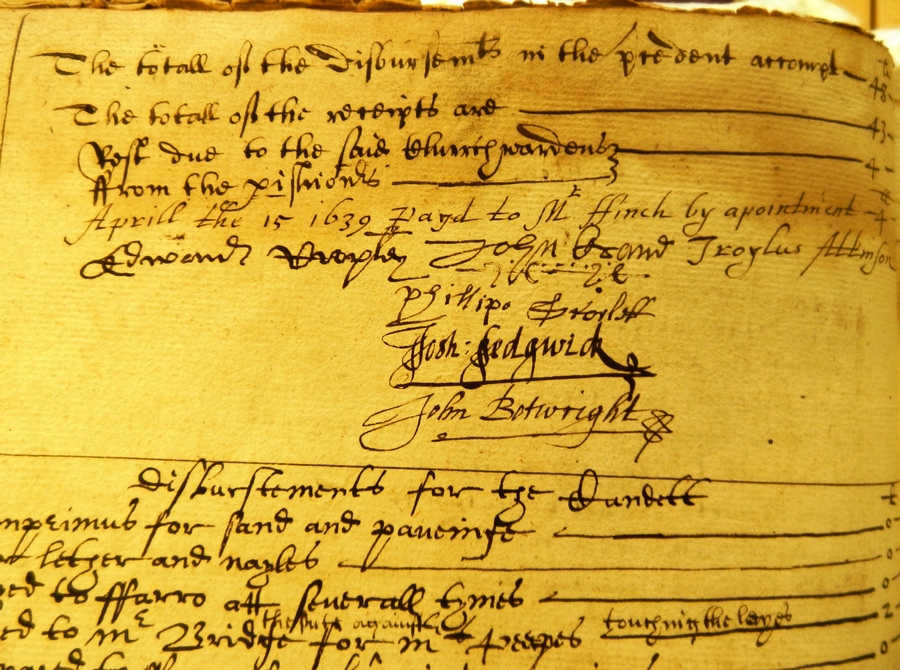 The totall of the Disbursemts in the precedent accompt 48
The totall of the receipts are 43
Rest due to the said Churchwardens 4
ffrom the pishioners
Aprill the 15 1639 Payd to Mr ffinch by apointment 4
Edward John Brand Troylus Attkinson
Phillipe
Josh: Sedgwick
John Botwright
disburstements for the
inprimus for sand and paveinge
lether and nayles
to ffarro att severall tymes
the suite against
to mr Bridge for touching the leayes